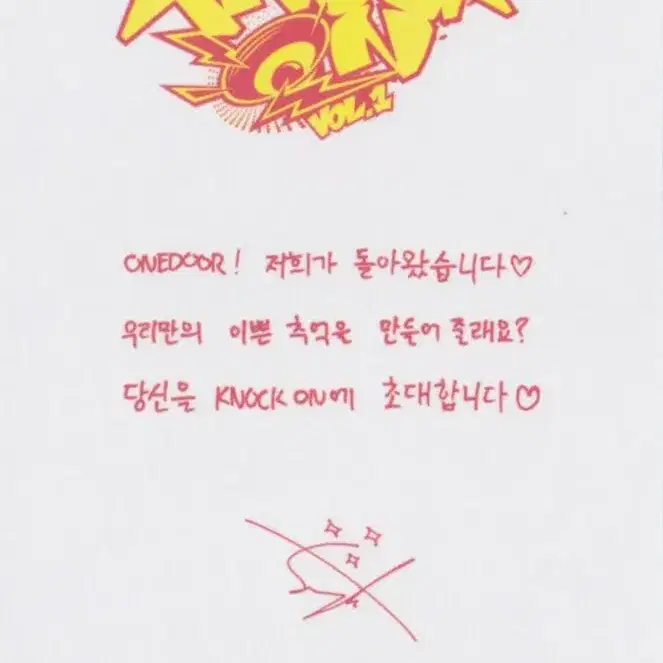 ON
VOL.1
ONEDOOR! 저희가 돌아왔습니다♡
우리만의 이쁜 추억을 만들어 줄래요?
당신을 KNOCK ON에 초대합니다♡